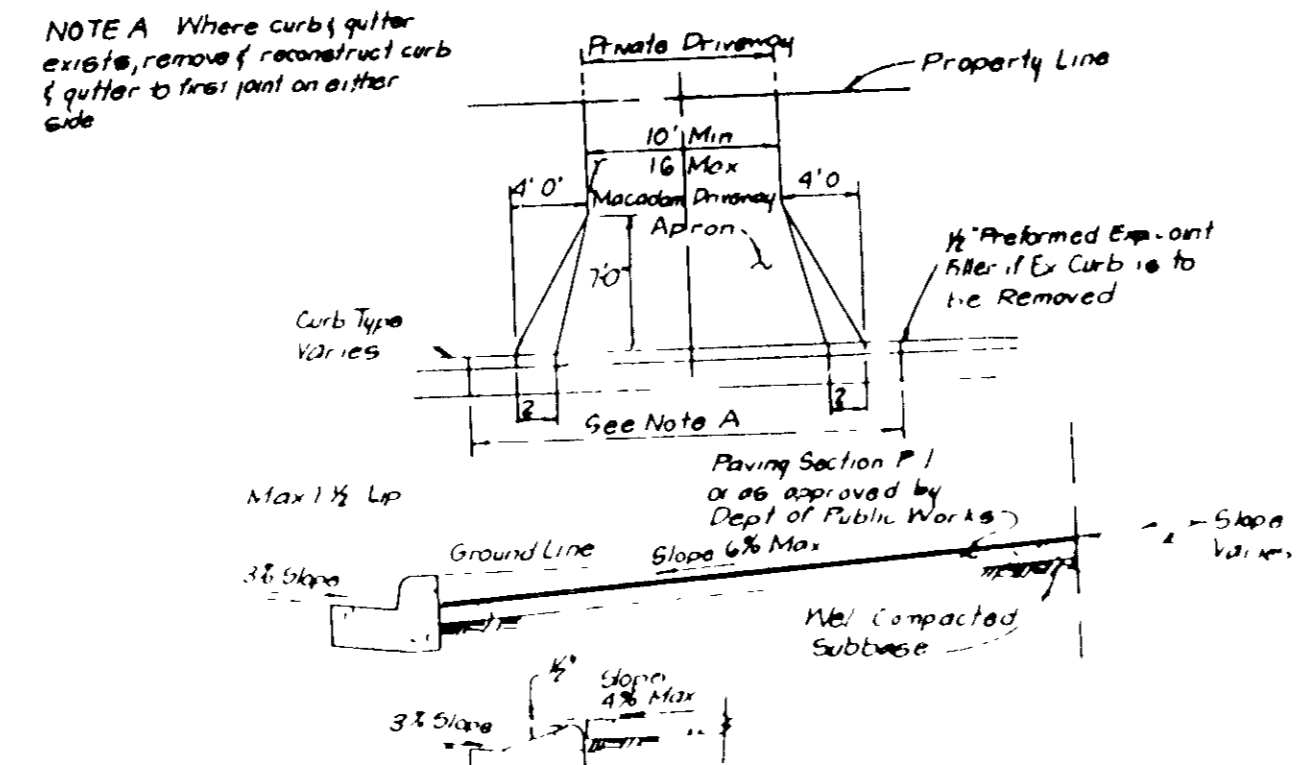 NOTE A Where curb & gutter
exists, remove & reconstruct curb
& gutter to first joint on either
side
Private Driveway
Property Line
10' Min
16 Max
4'0'
4'0
Macadam Driveway
Apron
7'0"
1/2" Preformed Exp. oint
Filler if Ex Curb is to
be Removed
Curb Type
Varies
2
2
See Note A
Paving Section P 1
or as approved by
Dept of Public Works
Max 1 1/2 Lip
Ground Line
Slope 6% Max
Slope
Varies
3% Slope
Wel Compacted
Subbase
1/2"
Slope
4% Max
3% Slope